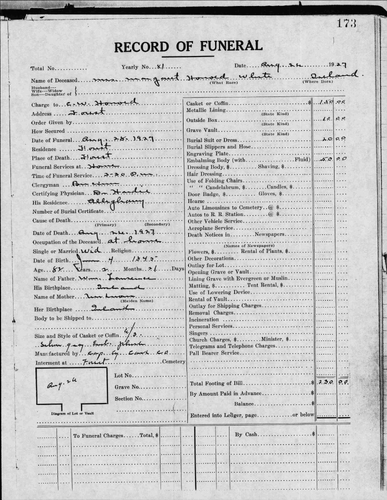 173
RECORD OF FUNERAL
Total No. Yearly No. 81 Date Aug. 26 1927
Name of Deceased Mrs. Margaret Howard White (What Race) Ireland. (Where Born)
Husband—
Wife—Widow
Son—Daughter of
Charge to C. W. Howard
Address Forest
Order Given by
How Secured
Date of Funeral Aug. 28. 1927
Residence Forest
Place of Death Forest
Funeral Services at Home
Time of Funeral Service 2:30 P.M.
Clergyman
Certifying Physician Dr.
His Residence Alleghany
Number of Burial Certificate
Cause of Death
(Primary) (Secondary)
Date of Death Aug. 26 1927
Occupation of the Deceased at home
Single or Married Wid Religion
Date of Birth June 4 1845
Age 82 Years 2 Months 21 Days
Name of Father Wm. Lawrence
His Birthplace Ireland
Name of Mother Unknown
(Maiden Name)
Her Birthplace Ireland
Body to be Shipped to
Size and Style of Casket or Coffin 6/3
Silver gray
Manufactured by Co
Interment at Forest Cemetery
Aug 26
Lot No.
Grave No.
Section No.
Diagram of Lot or Vault
Casket or Coffin $ 150 00
Metallic Lining
(State Kind)
Outside Box 10 00
(State Kind)
Grave Vault
(State Kind)
Burial Suit or Dress 20 00
Burial Slippers and Hose
Engraving Plate
Embalming Body (with Fluid) 50 00
Dressing Body, $ Shaving, $
Hair Dressing
Use of Folding Chairs
" " Candelabrum, $ Candles, $
Door Badge, $ Gloves, $
Hearse
Auto Limousines to Cemetery @ $
Autos to R. R. Station @ $
Other Vehicle Service
Aeroplane Service
Death Notices in Newspapers
(Names of Newspapers)
Flowers, $ Rental of Plants, $
Other Decorations
Outlay for Lot
Opening Grave or Vault
Lining Grave with Evergreen or Muslin
Matting, $ Tent Rental, $
Use of Lowering Device
Rental of Vault
Outlay for Shipping Charges
Removal Charges
Incineration
Personal Services
Singers
Church Charges, $ Minister, $
Telegrams and Telephone Charges
Pall Bearer Service
Total Footing of Bill $ 230 00
By Amount Paid in Advance
Balance
Entered into Ledger, page or below
To Funeral Charges Total, $ By Cash $